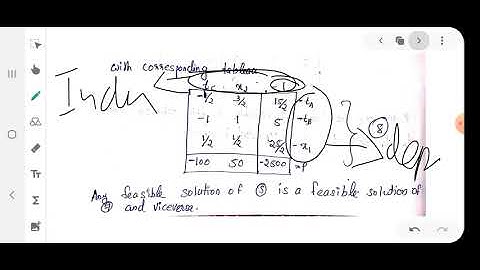 with corresponding tableau
Indu
t_c x_2 -1
-1/2 3/2 15/2 -t_A
-1 1 5 -t_B
1/2 1/2 25/2 -x_1
-100 50 -2500 =P
⑧
dep
Any feasible solution of ⑤ is a feasible solution of
and viceversa.
Tr